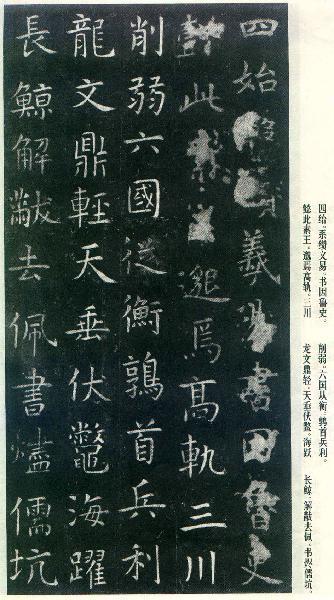 四始羲易書因魯史
懿此素王邈焉高軌三川
削弱六國從衡鶉首兵利
龍文鼎輕天垂伏鼈海躍
長鯨解黻去佩書燼儒坑
四始。系缵文易。书因鲁史。
懿此素王。邈焉高轨。三川
削弱。六国从衡。鹑首兵利。
龙文鼎轻。天垂伏鳖。海跃
长鲸。解黻去佩。书烬儒坑。